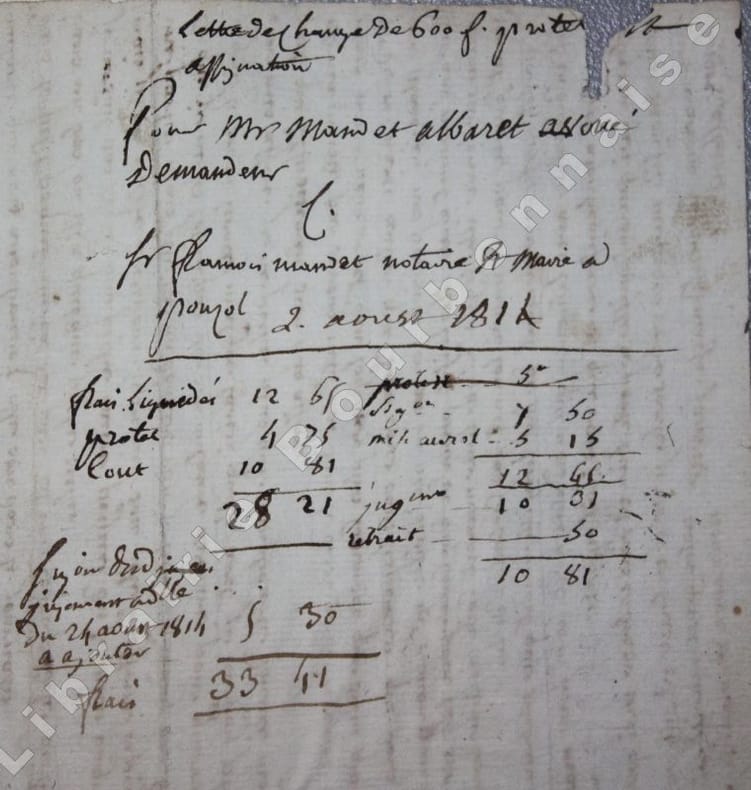 Lettre de Change de 600 f. protet et
assignation
Pour Mr Mandet albaret avoué
Demandeur
C.
Sr francois mandet notaire et Maire a
pouzol 2. aoust 1814
frais liquidés 12 65
protet 4 75
Cout 10 81
28 21
protest 5
Sigon 7 50
5 15
12 65
jugmt 10 31
retrait 50
10 81
jugement
du 24 aoust 1814 5 30
a ajouter
33 51
frais
Librairie Bourbonnaise